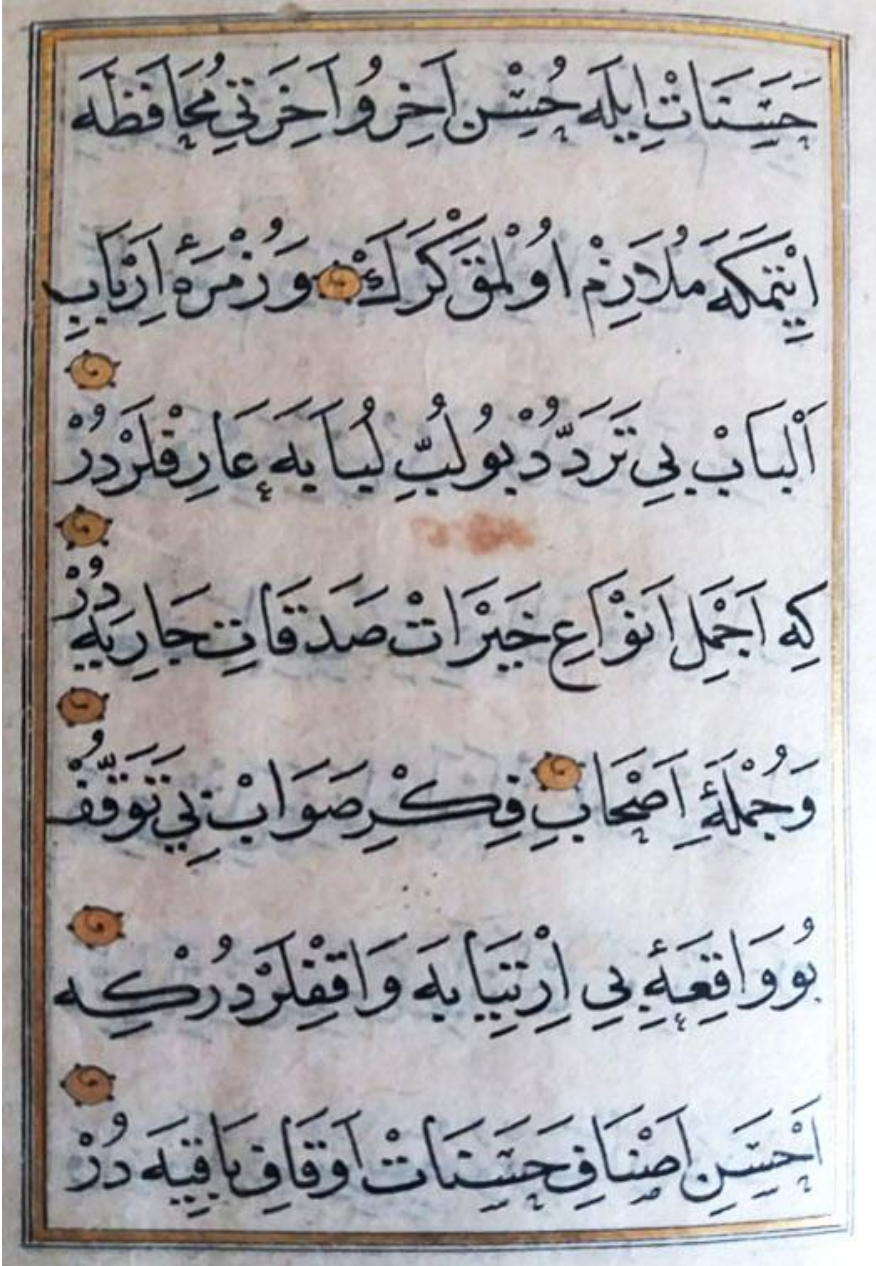 حَسَنَاتْ اِيلَه حُسْنِ آخِر وُ آخِرَتِي مُحَافَظَه
اِيْتمَكَه مُلَازِمْ اُولْمَقْ كَرَكْ وَزُمْرَهٔ اَرْبَابِ
اَلْبَابْ بِي تَرَدُّدْ بُو لُبِّ لُبَابَه عَارِفْلَرْدُرْ
كِه اَجْمَلِ اَنْوَاعِ خَيْرَاتْ صَدَقَاتِ جَارِيَه دُرْ
وَجُمْلَهٔ اَصْحَابِ فِكْرِ صَوَابْ بِي تَوَقُّفْ
بُو وَاقِعَهٔ بِي اِرْتِيَابَه وَاقِفْلَرْدُرْكِه
اَحْسَنِ اَصْنَافِ حَسَنَاتْ اَوْقَافِ بَاقِيَه دُرْ